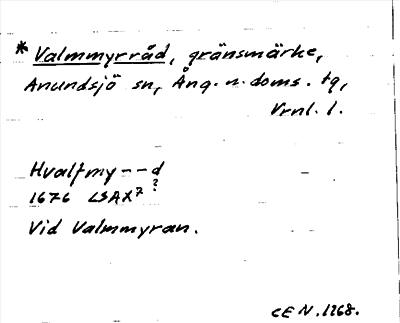 * Valmmyrråd, gränsmärke,
Anundsjö sn, Ång. n. doms. tg,
Vrnl. l.
Hvalfmy--d
1676 LSAX 7 ?
Vid Valmmyran.
CEN. 1268.